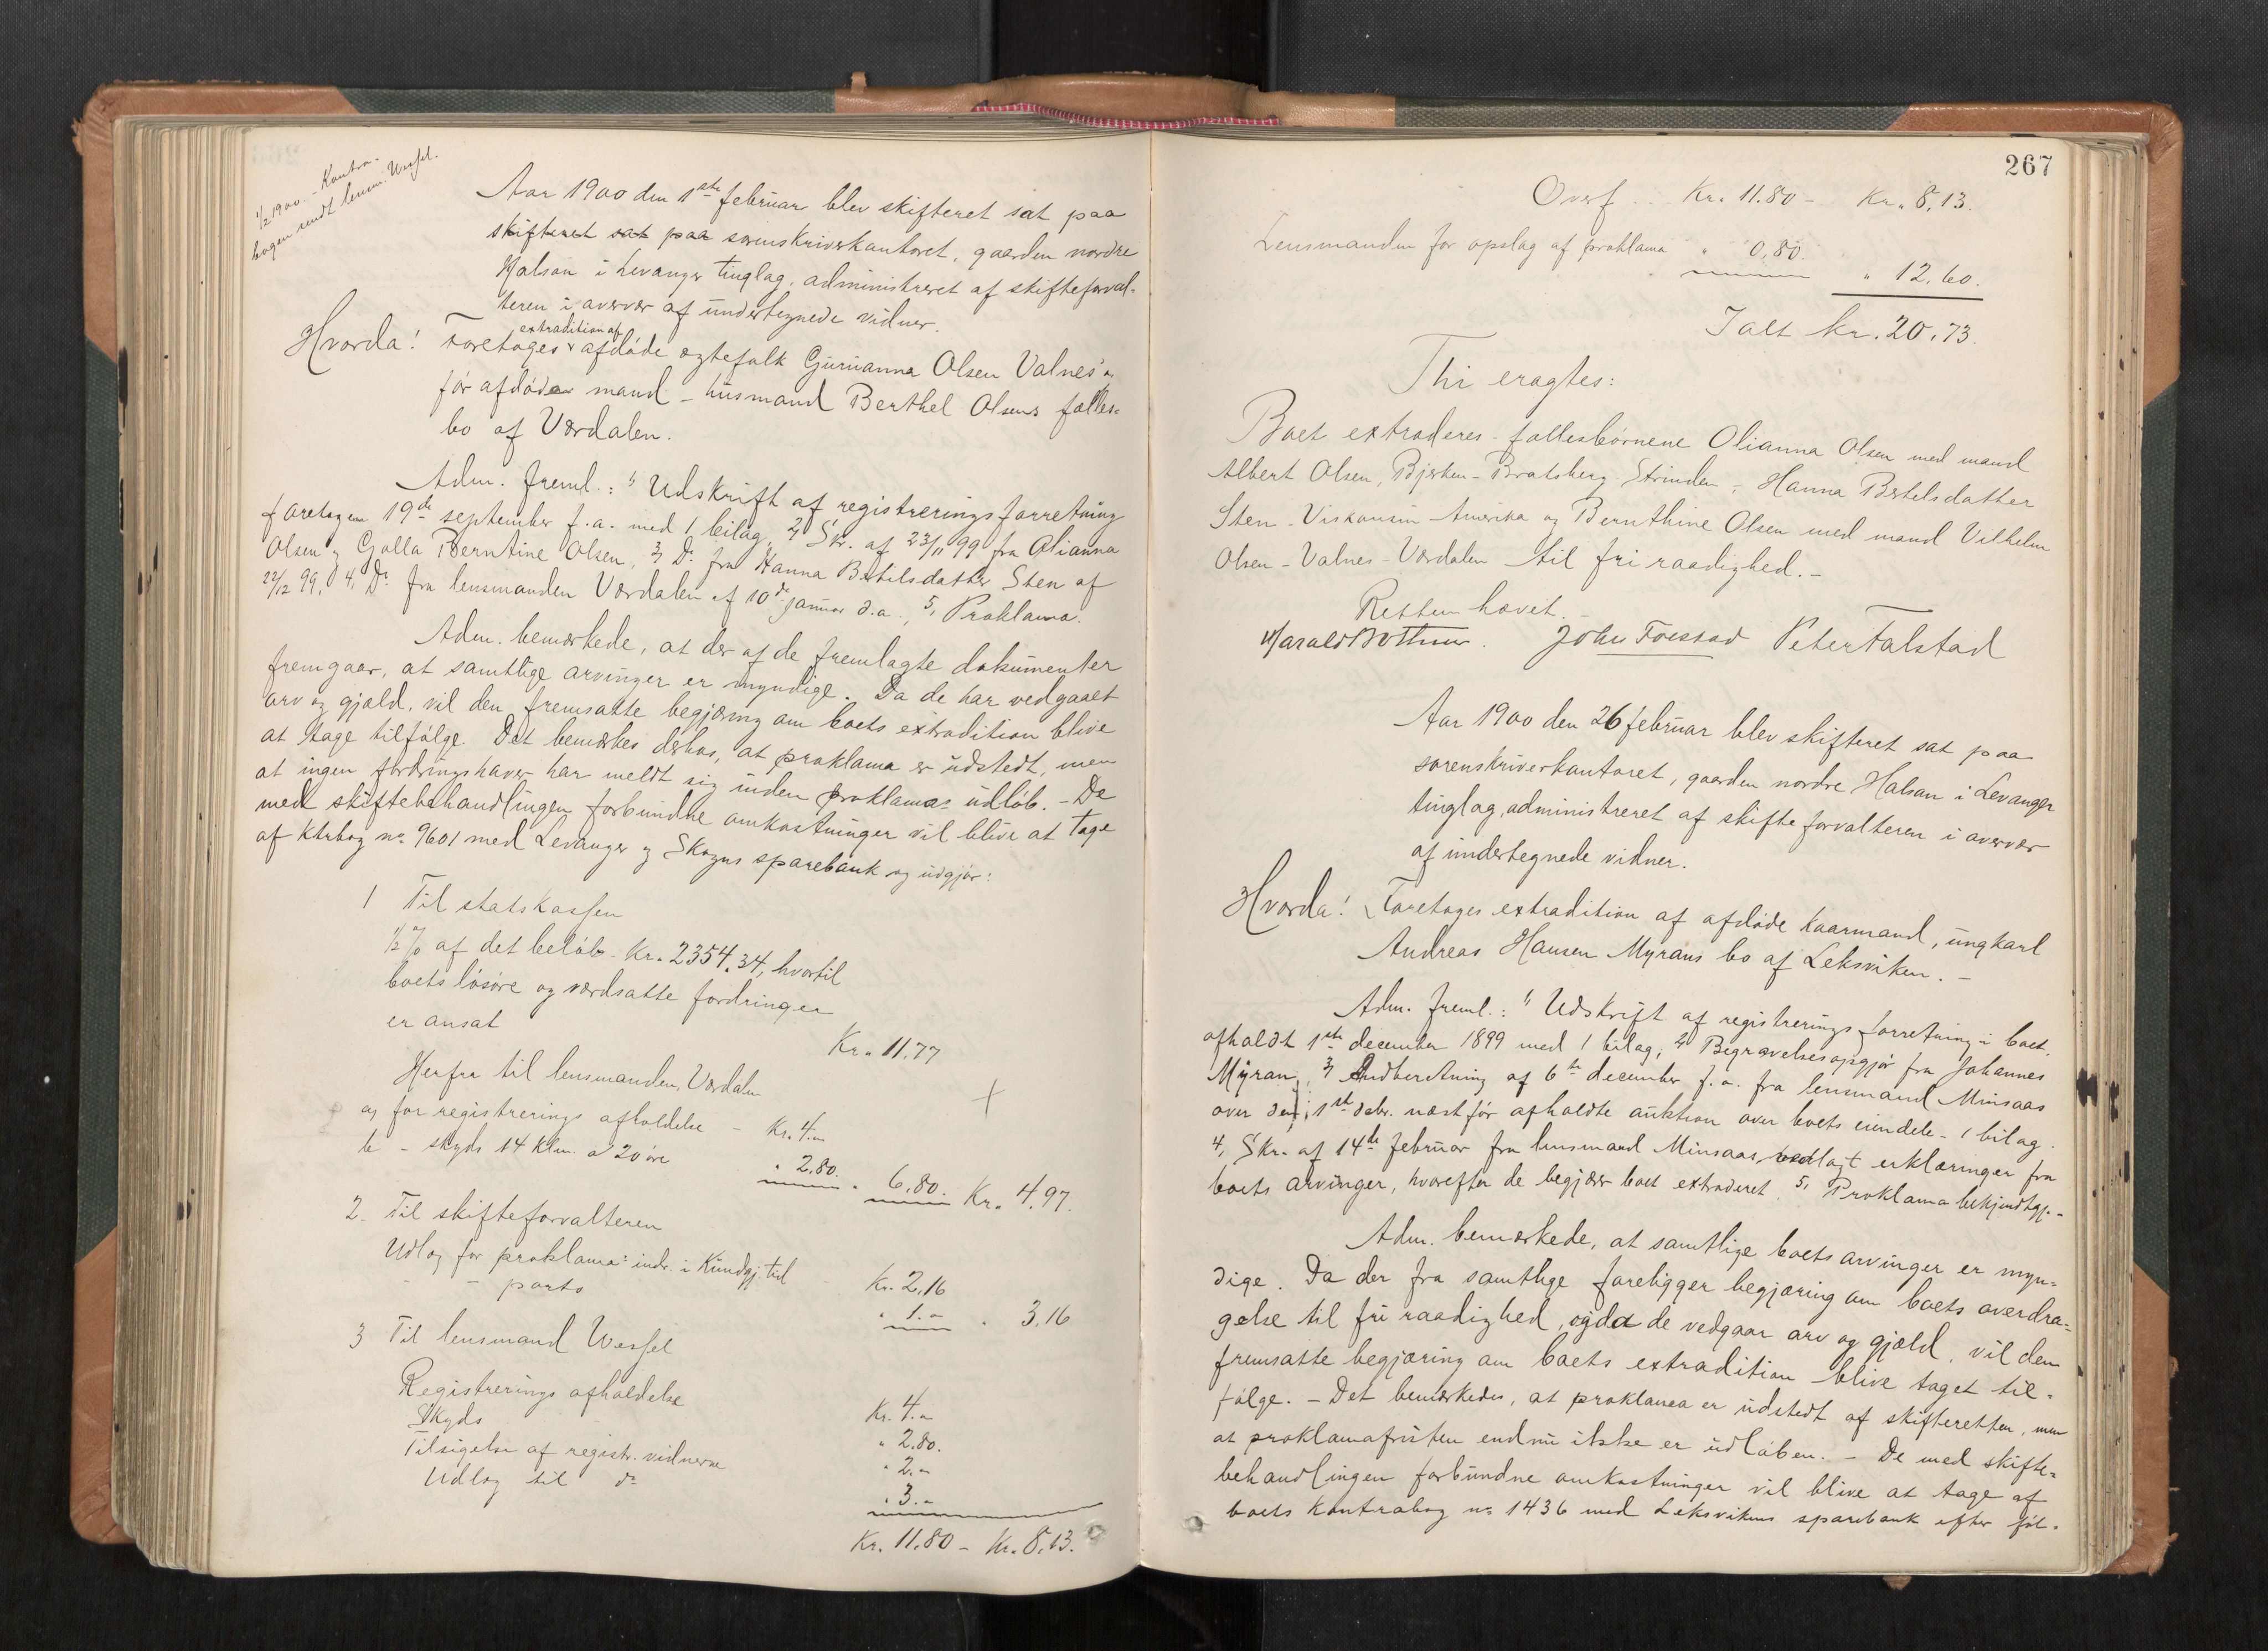 1/2 1900. - Kontra-
bogen sendt lensm. Wessel.
Aar 1900 den 1ste februar blev skifteret sat paa
skifteret sat paa sorenskriverkontoret, gaarden nordre
Halsan i Levanger tinglag, administreret af skifteforval-
teren i overvær af undertegnede vidner.
Hvorda! Foretoges extradition af afdøde ægtefolk Gurianna Olsen Valnes's
før afdøde mand - husmand Berthel Olsens fælles-
bo af Værdalen.
Adm. freml.: 1) Udskrift af registreringsforretning
foretagen 19de september f.a. med 1 bilag, 2) Skr. af 23/11 99 fra Olianna
Olsen og Golla Berntine Olsen, 3) Do fra Hanna Bertilsdatter Sten af
22/12 99, 4, Do fra lensmanden Værdalen af 10de januar d.a., 5, Proklama.
Adm. bemærkede, at der af de fremlagte dokumenter
fremgaar, at samtlige arvinger er myndige. Da de har vedgaaet
arv og gjæld, vil den fremsatte begjæring om boets extradition blive
at tage tilfølge. Det bemærkes derhos, at proklama er udstedt, men
at ingen fordringshaver har meldt sig inden proklamas udløb. - De
med skiftebehandlingen forbundne omkostninger vil blive at tage
af Ktrbog no 9601 med Levanger og Skogns sparebank og udgjør:
1 Til statskassen
1/2 % af det beløb - Kr. 2354.34, hvortil
boets løsøre og værdsatte fordringer
er ansat Kr. 11.77
Herfra til lensmanden Værdalen
a, for registrerings afholdelse - Kr. 4.-
b - skyds 14 klm. a 20 øre " 2.80. " 6.80. Kr. 4.97.
2. Til skifteforvalteren
Udlæg for proklama: indr. i Kundgj. tid Kr. 2.16
- - porto " 1.- " 3.16
3 Til lensmand Wessel
Registrerings afholdelse Kr. 4.-
Skyds " 2.80.
Tilsigelse af registr. vidnerne " 2.-
Udlæg til do " 3.-
Kr. 11.80 - Kr. 8.13.
267
Overf. - Kr. 11.80 - Kr. 8.13.
Lensmanden for opslag af proklama " 0.80.
" 12.60.
Ialt kr. 20.73.
Thi eragtes:
Boet extraderes fællesbørnene Olianna Olsen med mand
Albert Olsen, Bjerken - Bratsberg Strinden, - Hanna Bertelsdatter
Sten - Viskonsin Amerika og Bernthine Olsen med mand Vilhelm
Olsen - Valnes - Værdalen til fri raadighed. -
Retten hævet. -
Harald Bothner. John Foesstad Peter Falstad
Aar 1900 den 26 februar blev skifteret sat paa
sorenskriverkontoret, gaarden nordre Halsan i Levanger
tinglag, administreret af skifteforvalteren i overvær
af undertegnede vidner.
Hvorda! Foretoges extradition af afdøde kaarmand, ungkarl
Andreas Hansen Myrans bo af Leksviken. -
Adm. freml.: 1) Udskrift af registreringsforretning i boet,
afholdt 1ste december 1899 med 1 bilag, 2) Begravelsesopgjør fra Johannes
Myran, 3) Indberetning af 6te december f.a. fra lensmand Minsaas
over den 1ste debr. næst før afholdte auktion over boets eiendele - 1 bilag.
4, Skr. af 14de februar fra lensmand Minsaas, vedlagt erklæringer fra
boets arvinger, hvorefter de begjærer boet extraderet. 5, Proklama bekjendtgj. -
Adm. bemærkede, at samtlige boets arvinger er myn-
dige. Da der fra samtlige foreligger begjæring om boets overdra-
gelse til fri raadighed, og da de vedgaar arv og gjæld, vil den
fremsatte begjæring om boets extradition blive taget til-
følge. - Det bemærkedes, at proklama er udstedt af skifteretten, men
at proklamafristen endnu ikke er udløben. - De med skifte-
behandlingen forbundne omkostninger vil blive at tage af
boets Kontrabog no 1436 med Leksvikens sparebank efter føl-